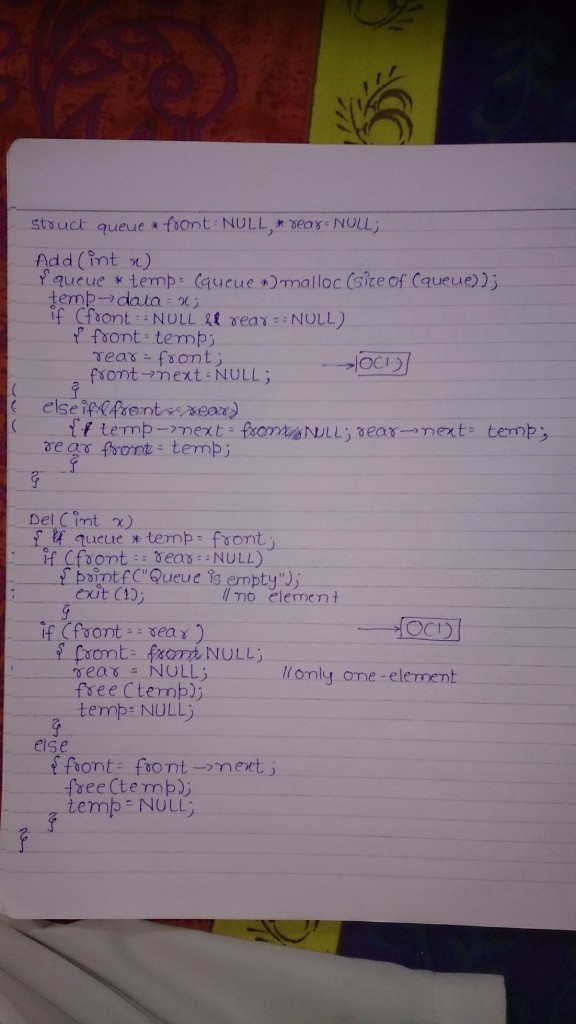 struct queue * front = NULL, * rear = NULL;
Add (int x)
{ queue * temp = (queue *) malloc (size of (queue));
temp→data = x;
if (front == NULL && rear == NULL)
{ front = temp;
rear = front;
front→next = NULL;
→ O(1)
}
else if (front == rear)
{ temp→next = front NULL; rear→next = temp;
rear front = temp;
}
}
Del (int x)
{ if queue * temp = front;
if (front == rear == NULL)
{ printf("Queue is empty");
exit (1); //no element
}
if (front == rear) → O(1)
{ front = front NULL;
rear = NULL; //only one-element
free (temp);
temp = NULL;
}
else
{ front = front →next;
free (temp);
temp = NULL;
}
}